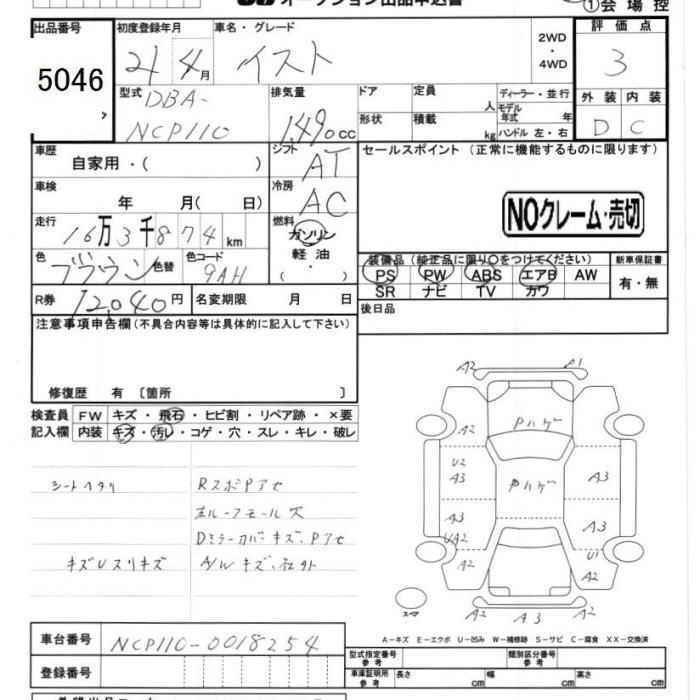 オークション出品申込書
①会場控
出品番号 初度登録年月 車名・グレード 2WD ・ 4WD 評価点
5046 21 4月 イスト 3
型式 DBA-NCP110 排気量 1490cc ドア 定員 人 ディーラー・並行
形状 積載 kg モデル年式 年式 ハンドル 左・右
外装 内装
D C
車歴 自家用・( ) シフト AT セールスポイント (正常に機能するものに限ります)
車検 年 月( 日) 冷房 AC
NOクレーム・売切
走行 16万3千874km 燃料 ガソリン
軽油
( ・ )
色 ブラウン 色替 色コード 9AH
装備品 (純正品に限り○をつけてください) 新車保証書
PS PW ABS エアB AW 有・無
SR ナビ TV カワ
R券 12,040円 名変期限 月 日
後日品
注意事項申告欄 (不具合内容等は具体的に記入して下さい)
修復歴 有 〔箇所 〕
検査員 FW キズ・飛石・ヒビ割・リペア跡・×要
記入欄 内装 キズ・汚レ・コゲ・穴・スレ・キレ・破レ
シートヘタリ RスポPアセ
左ルーフモール欠
Dミラーカバーキズ、Pアセ
キズUスリキズ A/Wキズ、社外
A2 A1
A2 Pハゲ
U2
A3 Pハゲ A3
A3 A3
UA2 U1
A2 A2
スペア A2 A3 A2
A-キズ E-エクボ U-凹み W-補修跡 S-サビ C-腐食 XX-交換済
車台番号 NCP110-0018254
型式指定番号 参考 類別区分番号 参考
登録番号
車庫証明用 参考 長さ cm 幅 cm 高さ cm